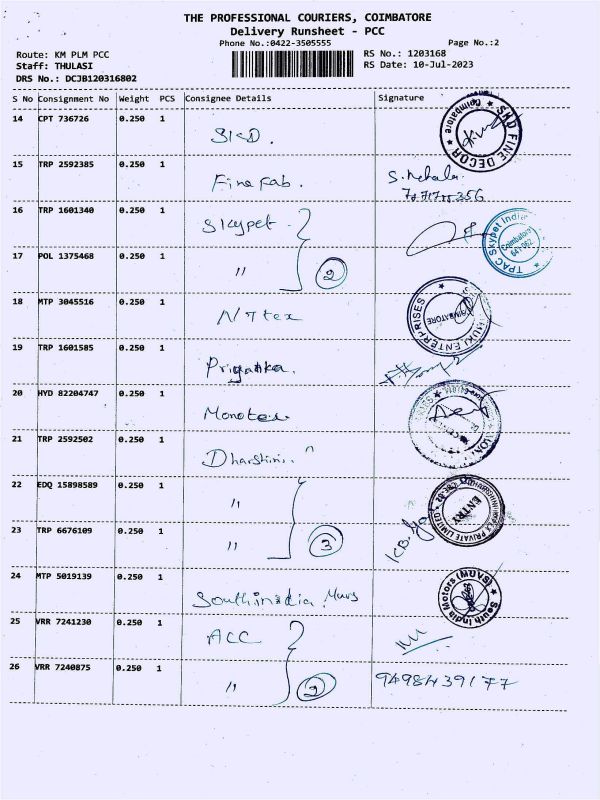 THE PROFESSIONAL COURIERS, COIMBATORE
Delivery Runsheet - PCC
Phone No.:0422-3505555
Page No.:2
Route: KM PLM PCC
RS No.: 1203168
Staff: THULASI
RS Date: 10-Jul-2023
DRS No.: DCJB120316802
S No Consignment No Weight PCS Consignee Details Signature
14 CPT 736726 0.250 1 SKD. SKD FINE DECOR Coimbatore
15 TRP 2592385 0.250 1 Fine Fab.
16 TRP 1601340 0.250 1 Skypet TPAC Skypet India Coimbatore 641 062
17 POL 1375468 0.250 1 " 2
18 MTP 3045516 0.250 1 ENTERPRISES COIMBATORE
19 TRP 1601585 0.250 1 Priyanka.
20 HYD 82204747 0.250 1 Monotex
21 TRP 2592502 0.250 1 Dharshini.. "
22 EDQ 15898589 0.250 1 " PRIVATE LIMITED ENTRY
23 TRP 6676109 0.250 1 " 3
24 MTP 5019139 0.250 1 Southindia Muvs South India Motors (MUVS)
25 VRR 7241230 0.250 1 ACC
26 VRR 7240875 0.250 1 " 2 9498439177